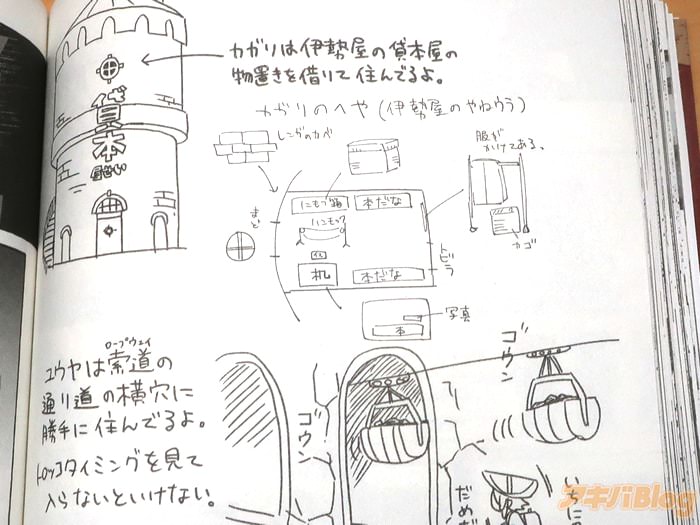 カガリは伊勢屋の貸本屋の
物置きを借りて住んでるよ。
貸本
カガリのへや(伊勢屋のやねウラ)
レンガのカベ
服が
かけてある、
にもつ箱
本だな
ハンモック
まど
トビラ
カゴ
机
本だな
写真
本
ロープウェイ
ユウヤは索道の
通り道の横穴に
勝手に住んでるよ。
トロッコタイミングを見て
入らないといけない。
ゴウン
ゴウン
だめだ
いちにっ
アキバBlog